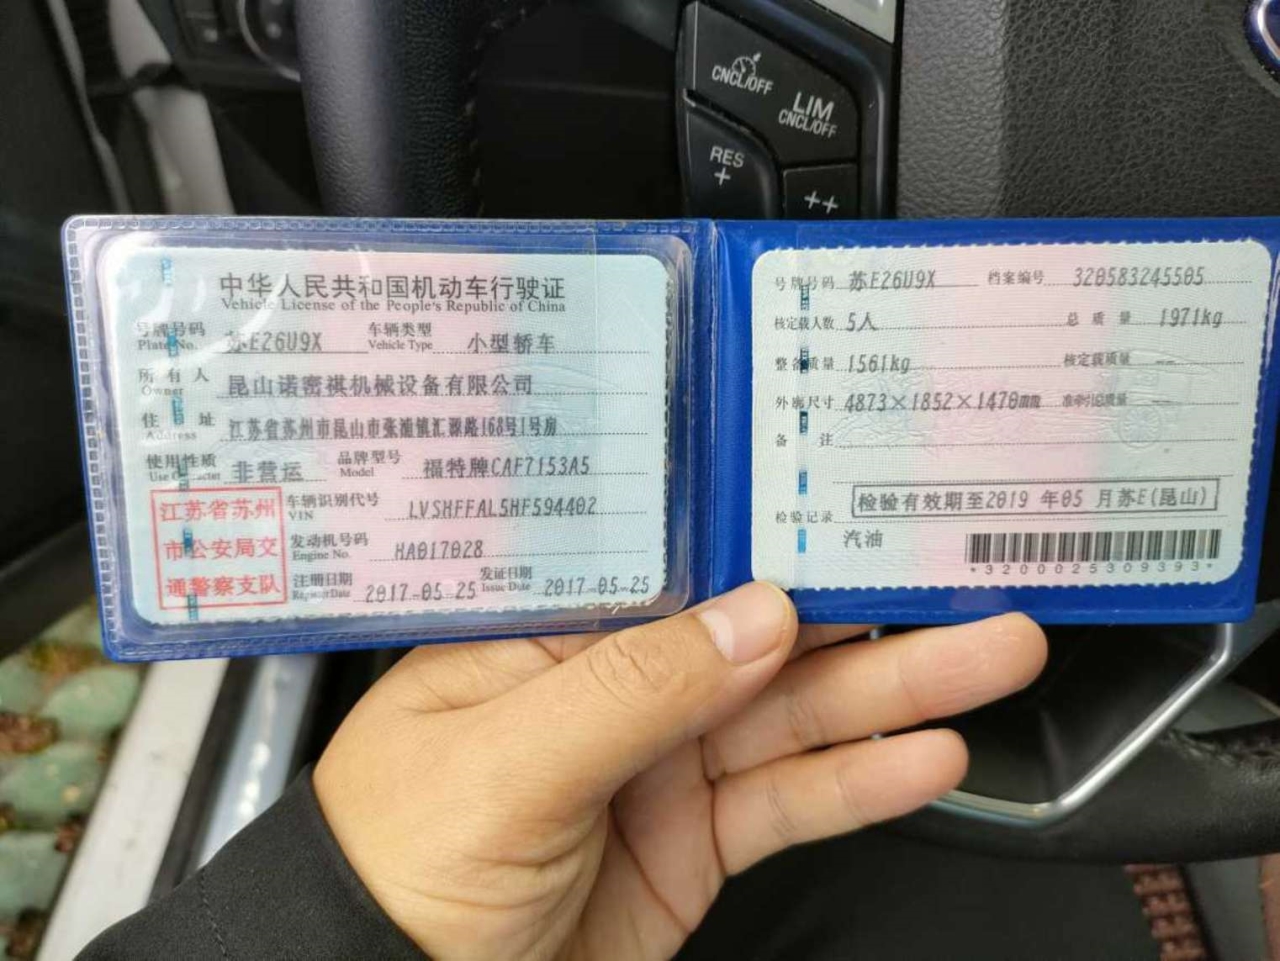 CNCL/OFF
LIM
CNCL/OFF
RES
+
++
中华人民共和国机动车行驶证
Vehicle License of the People's Republic of China
号牌号码 苏E26U9X 车辆类型 小型轿车
Plate No. Vehicle Type
所有人 昆山诺密祺机械设备有限公司
Owner
住址 江苏省苏州市昆山市张浦镇汇源路168号1号房
Address
使用性质 非营运 品牌型号 福特牌CAF7153A5
Use Character Model
江苏省苏州
市公安局交
通警察支队
车辆识别代号 LVSHFFAL5HF594402
VIN
发动机号码 HA017028
Engine No.
注册日期 2017-05-25 发证日期 2017-05-25
Register Date Issue Date
号牌号码 苏E26U9X 档案编号 320583245505
核定载人数 5人 总质量 1971kg
整备质量 1561kg 核定载质量 --
外廓尺寸 4873×1852×1470mm 准牵引总质量 --
备注
检验记录 检验有效期至2019年05月苏E(昆山)
汽油
*3200025309393*